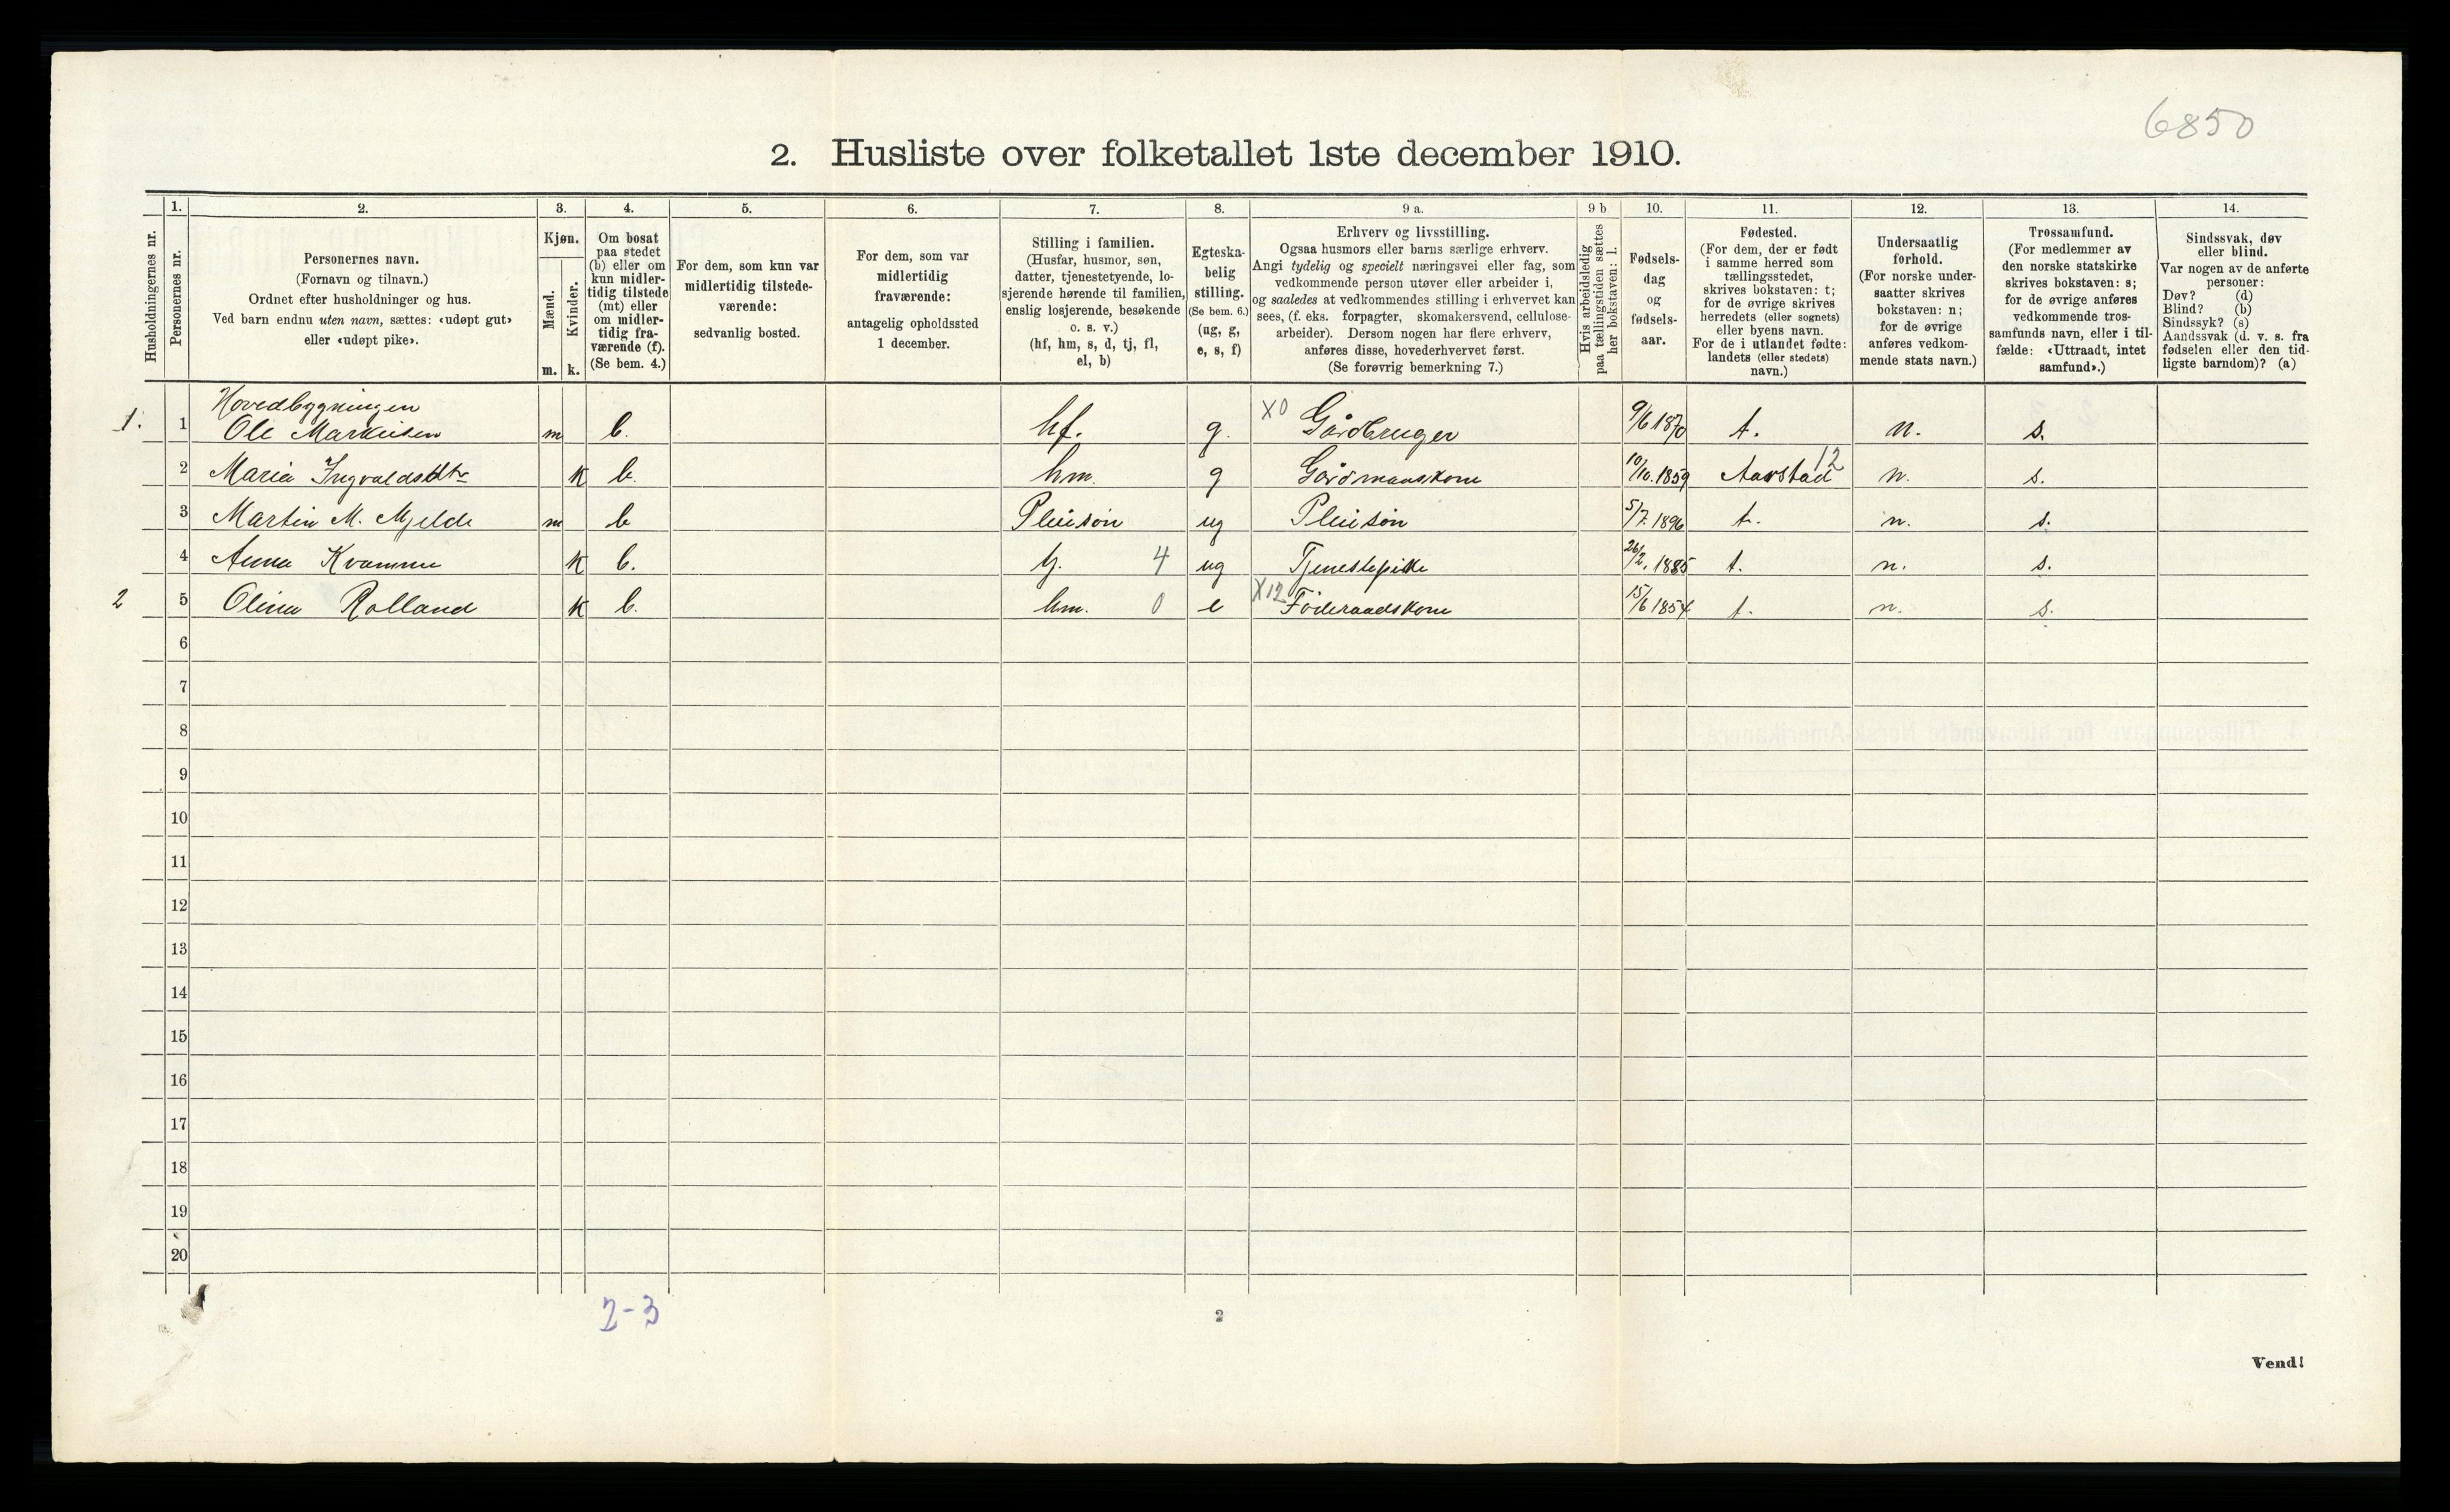 6850
2. Husliste over folketallet 1ste december 1910.
Husholdningernes nr.
1.
Personernes nr.
2.
Personernes navn.
(Fornavn og tilnavn.)
Ordnet efter husholdninger og hus.
Ved barn endnu uten navn, sættes: «udøpt gut»
eller «udøpt pike».
3.
Kjøn.
Mænd.
Kvinder.
m. k.
4.
Om bosat
paa stedet
(b) eller om
kun midler-
tidig tilstede
(mt) eller
om midler-
tidig fra-
værende (f).
(Se bem. 4.)
5.
For dem, som kun var
midlertidig tilstede-
værende:
sedvanlig bosted.
6.
For dem, som var
midlertidig
fraværende:
antagelig opholdssted
1 december.
7.
Stilling i familien.
(Husfar, husmor, søn,
datter, tjenestetyende, lo-
sjerende hørende til familien,
enslig losjerende, besøkende
o. s. v.)
(hf, hm, s, d, tj, fl,
el, b)
8.
Egteska-
belig
stilling.
(Se bem. 6.)
(ug, g,
e, s, f)
9 a.
Erhverv og livsstilling.
Ogsaa husmors eller barns særlige erhverv.
Angi tydelig og specielt næringsvei eller fag, som
vedkommende person utøver eller arbeider i,
og saaledes at vedkommendes stilling i erhvervet kan
sees, (f. eks. forpagter, skomakersvend, cellulose-
arbeider). Dersom nogen har flere erhverv,
anføres disse, hovederhvervet først.
(Se forøvrig bemerkning 7.)
9 b
Hvis arbeidsledig
paa tællingstiden sættes
her bokstaven: l.
10.
Fødsels-
dag
og
fødsels-
aar.
11.
Fødested.
(For dem, der er født
i samme herred som
tællingsstedet,
skrives bokstaven: t;
for de øvrige skrives
herredets (eller sognets)
eller byens navn.
For de i utlandet fødte:
landets (eller stedets)
navn.)
12.
Undersaatlig
forhold.
(For norske under-
saatter skrives
bokstaven: n;
for de øvrige
anføres vedkom-
mende stats navn.)
13.
Trossamfund.
(For medlemmer av
den norske statskirke
skrives bokstaven: s;
for de øvrige anføres
vedkommende tros-
samfunds navn, eller i til-
fælde: «Uttraadt, intet
samfund».)
14.
Sindssvak, døv
eller blind.
Var nogen av de anførte
personer:
Døv? (d)
Blind? (b)
Sindssyk? (s)
Aandssvak (d. v. s. fra
fødselen eller den tid-
ligste barndom)? (a)
Hovedbygningen
1. 1 Ole Markusen m b. hf. g. X0 Gårdbruger 9/6 1870 t. n. s.
2 Maria Ingvaldsdtr k b. hm. g Gårdmanskone 10/10. 1859 Aarstad 12 n. s.
3 Martin M. Mjelde m b Pleiesön ug Pleiesön 5/7. 1896 t. n. s.
4 Anna Kvamme k b. tj. 4 ug Tjenestepike 26/2. 1885 t. n. s.
2 5 Olina Rolland k b. hm. 0 e X12 Föderaadskone 15/6 1854 t. n. s.
6
7
8
9
10
11
12
13
14
15
16
17
18
19
20
2-3
2
Vend!